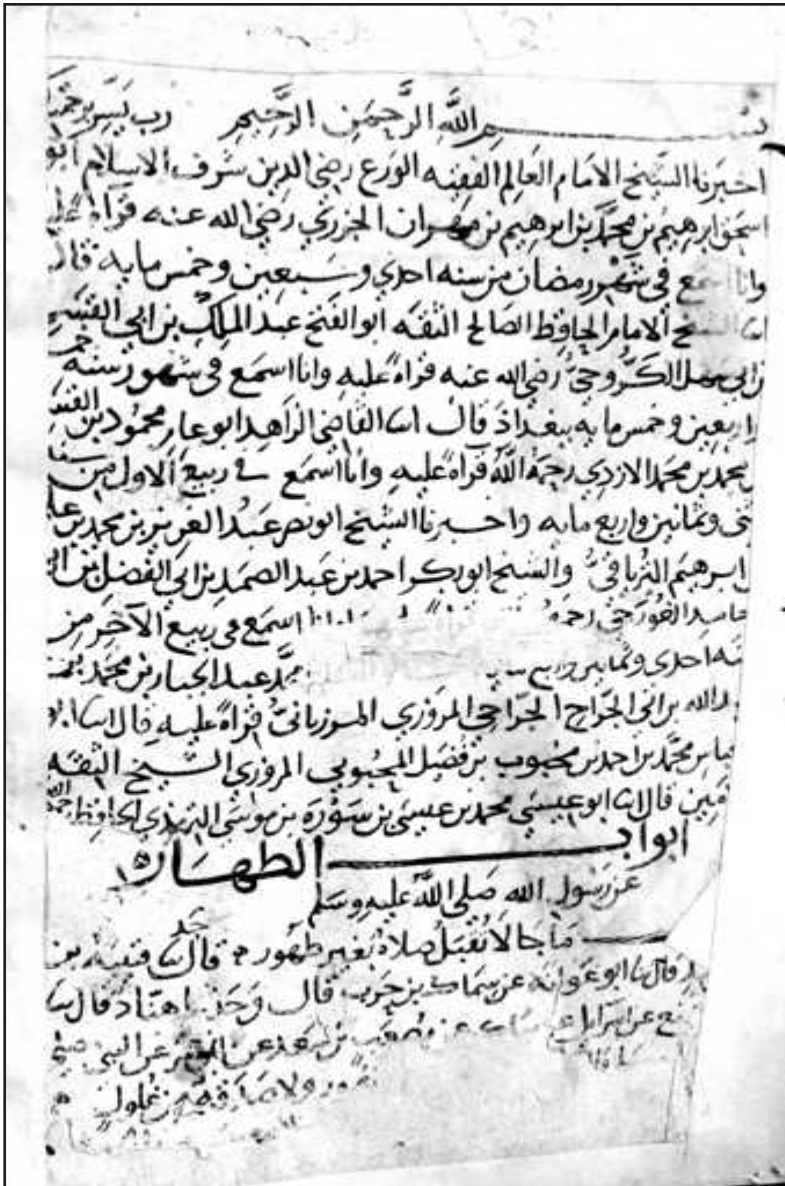 بسم الله الرحمن الرحيم رب يسر
اخبرنا الشيخ الامام العالم الفقيه الورع رضي الدين شرف الاسلام ابو
اسحق ابرهيم بن محمد بن ابرهيم الجزري رضي الله عنه قراة عليه
وانا اسمع في شهر رمضان من سنه احدي وسبعين وخمس مايه قال
الشيخ الامام الحافظ الصالح الثقه ابو الفتح عبد الملك بن ابي القسم
بن ابي سهل الكروخي رضي الله عنه قراة عليه وانا اسمع في شهور سنه
واربعين وخمس مايه ببغداذ قال القاضي الزاهد ابو عامر محمود بن القسم
بن محمد الازدي رحمه الله قراة عليه وانا اسمع في ربيع الاول من سنه
وثمانين واربع مايه واخبرنا الشيخ ابو نصر عبد العزيز بن محمد بن علي
بن ابرهيم الترياقي والشيخ ابو بكر احمد بن عبد الصمد بن ابي الفضل بن ابي
حامد الغورجي اسمع في ربيع الآخر من
سنه احدي وثمانين عبد الجبار بن محمد بن
عبد الله بن ابي الجراح الجراحي المروزي المرزباني قراة عليه قال
محمد بن احمد بن محبوب بن فضيل المحبوبي المروزي الشيخ الثقه
الامين قال ابو عيسي محمد بن عيسي بن سورة بن موسي الترمذي الحافظ
ابواب الطهارة
عن رسول الله صلي الله عليه وسلم
ما جا لا تقبل صلاة بغير طهور قال قتيبة بن
قال ابو عوانه عن سماك بن حرب قال هناد قال
عن اسرايل عن سماك عن مصعب بن سعد عن عن النبي
ولا صدقة من غلول